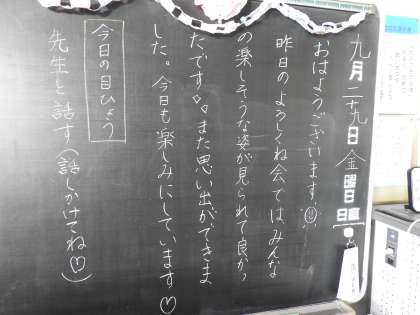 九月二十九日金曜日
日直
おはようございます。
昨日のよろしくね会では、みんな
の楽しそうな姿が見られて良かっ
たです。また思い出ができま
した。今日も楽しみにしています♡
今日の目ひょう
先生と話す(話しかけてね♡)